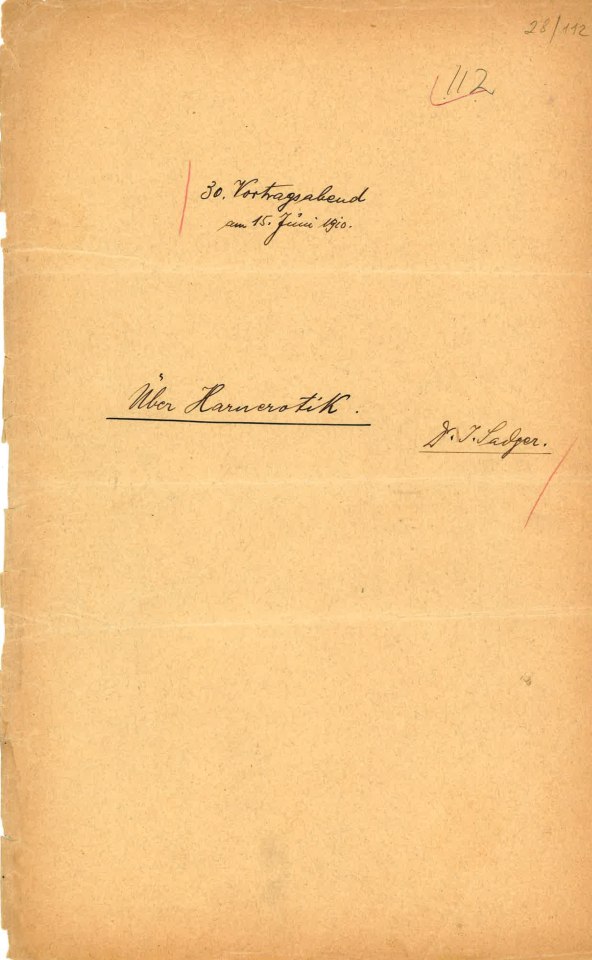 28/112
112
30. Vortragsabend
am 15. Juni 1910.
Über Harnerotik.
Dr. I. Sadger.